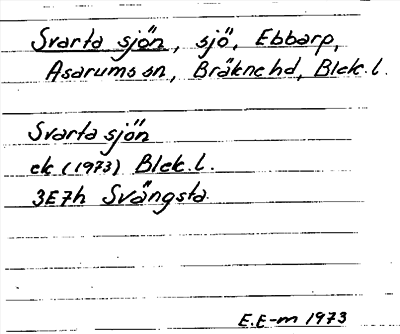 Svarta sjön, sjö, Ebbarp,
Asarums sn, Bräkne hd, Blek. l.
Svarta sjön
ek (1973) Blek. l.
3E7h Svängsta
E. E-m 1973